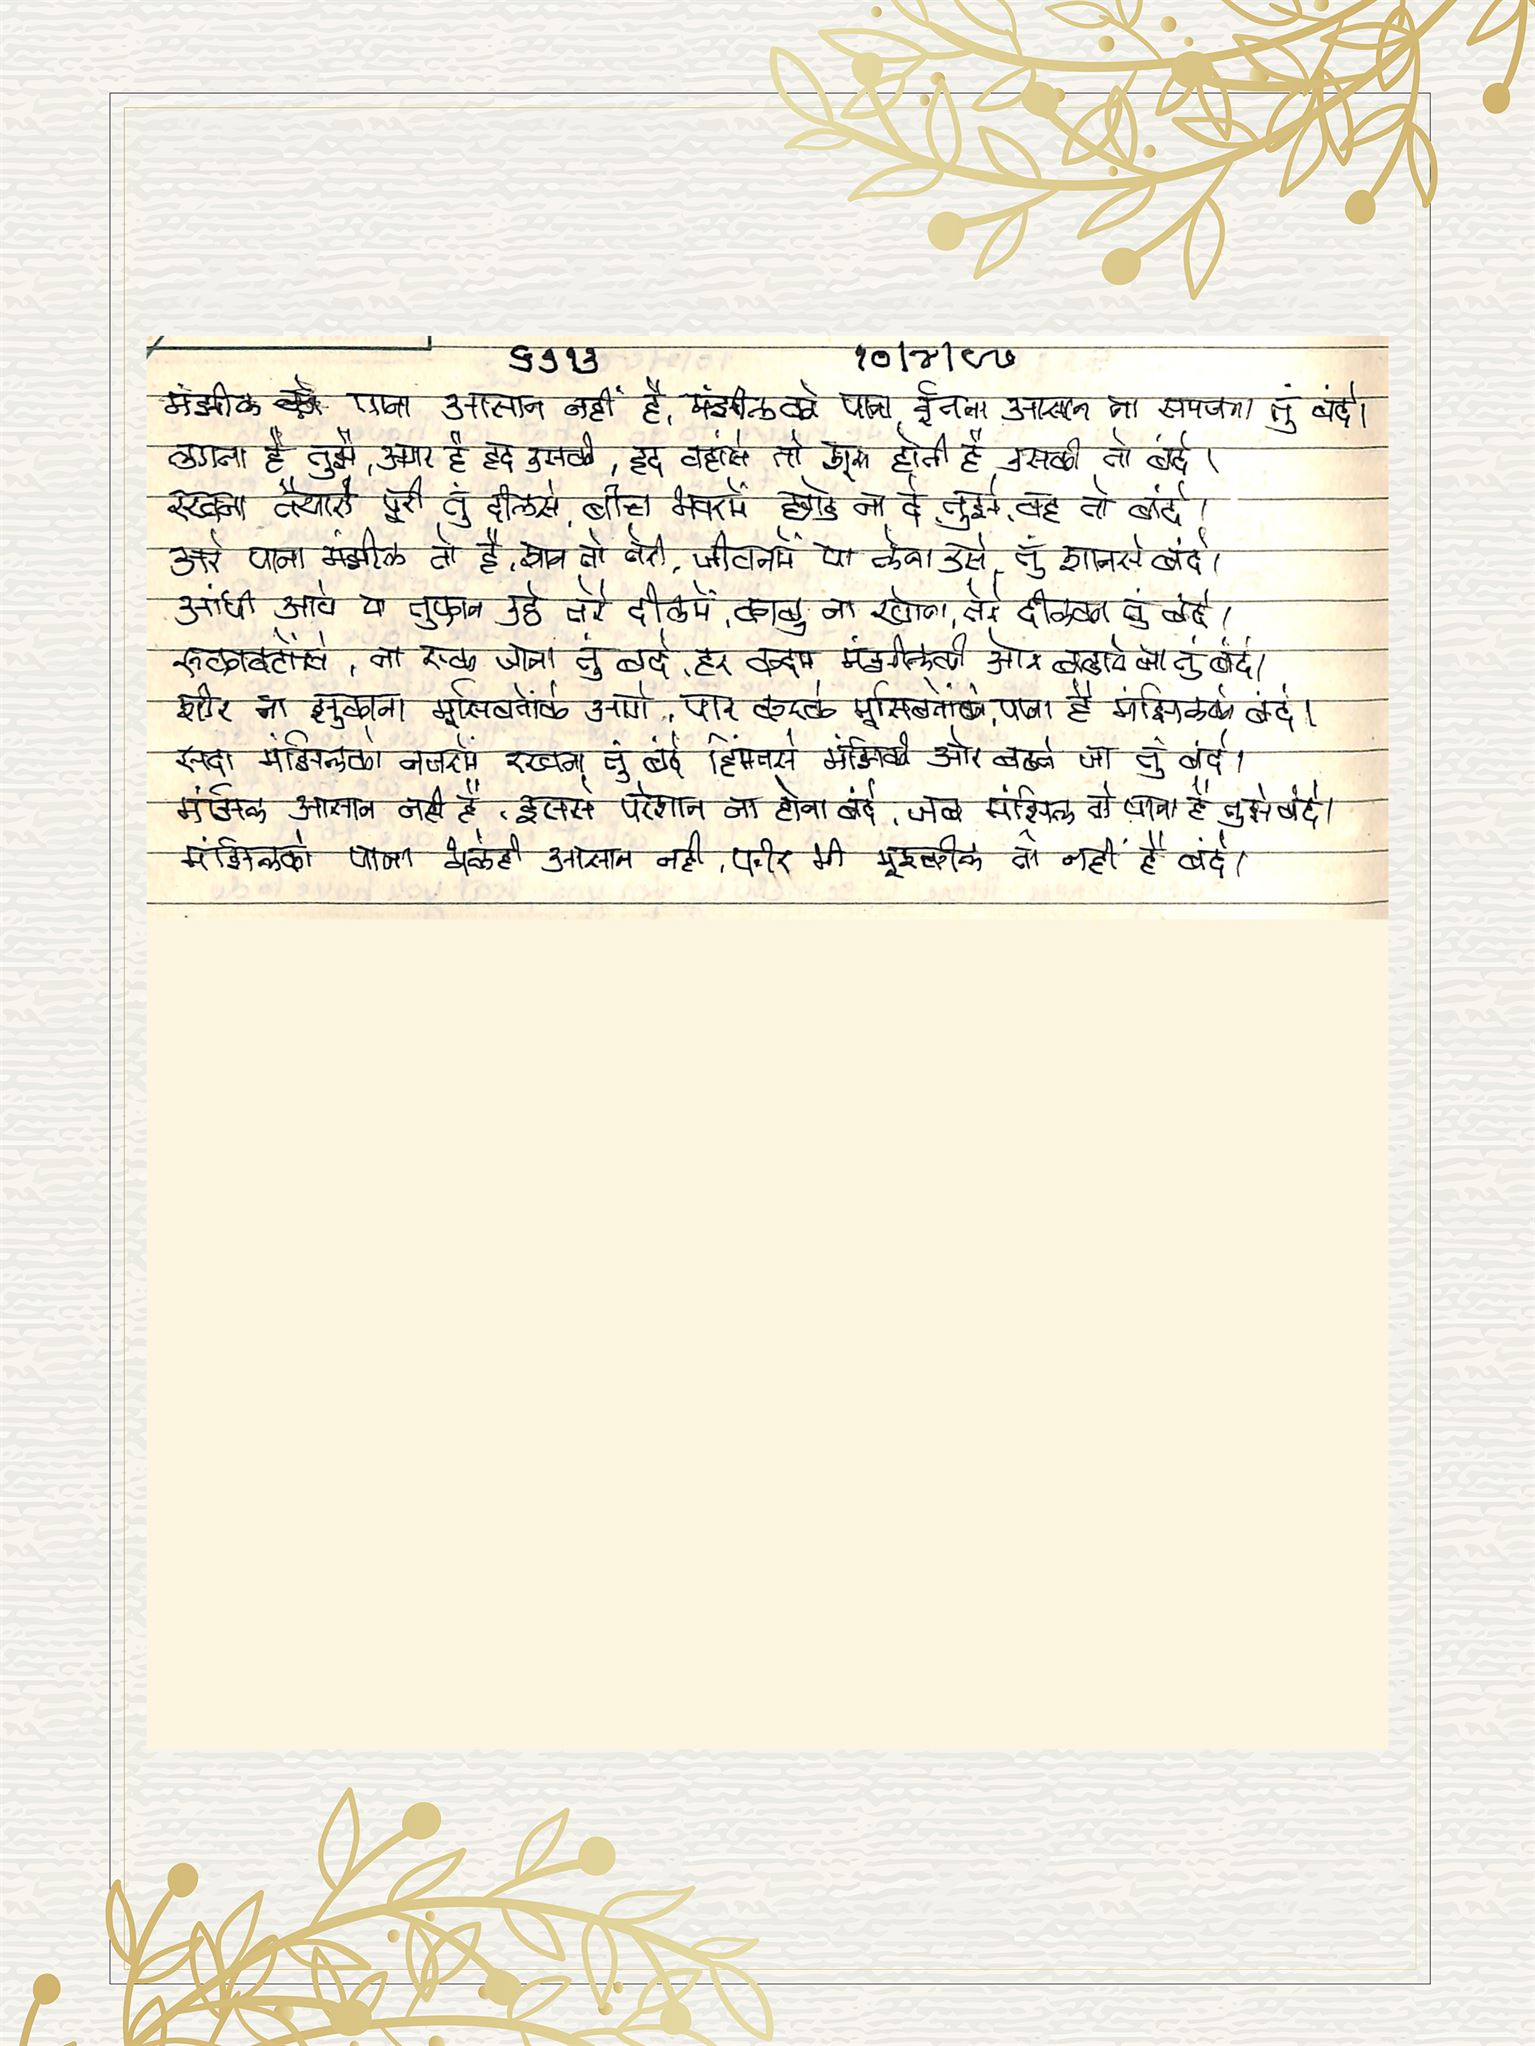 ६३१३ १०/४/८७
मंझील को पाना आसान नहीं है, मंझीलको पाना ईतना आसान ना समजना तुं बंदे।
लगता है तुझे, अगर है हद उसकी, हद वहांसे तो शुरू होती है उसकी तो बंदे।
रखना तैयारी पूरी तुं दीलसे, बीच भवरमें छोड ना दे तुझे, वह तो बंदे।
अरे पाना मंझील तो है, शान तो तेरी, जीवनमें पा लेना उसे, तुं शानसे बंदे।
आंधी आये या तुफान उठे तेरे दीलमें, काबु ना खोना, तेरे दीलका तुं बंदे।
रूकावटोंसे, ना रूक जाना तुं बंदे, हर कदम मंझीलकी ओर बढाये जा तुं बंदे।
शीर ना झुकाना मूसिबतोंके आगे, पार करके मूसिबतोंको, पाना है मंझिलको बंदे।
सदा मंझिलको नजरमें रखना तुं बंदे हिंमतसे मंझिकी ओर बढते जा तुं बंदे।
मंझिल आसान नही है, इससे परेशान ना होना बंदे, जब मंझिल तो पाना है तुझे बंदे।
मंझिलको पाना भलेही आसान नही, फीर भी मूश्कील तो नहीं है बंदे।